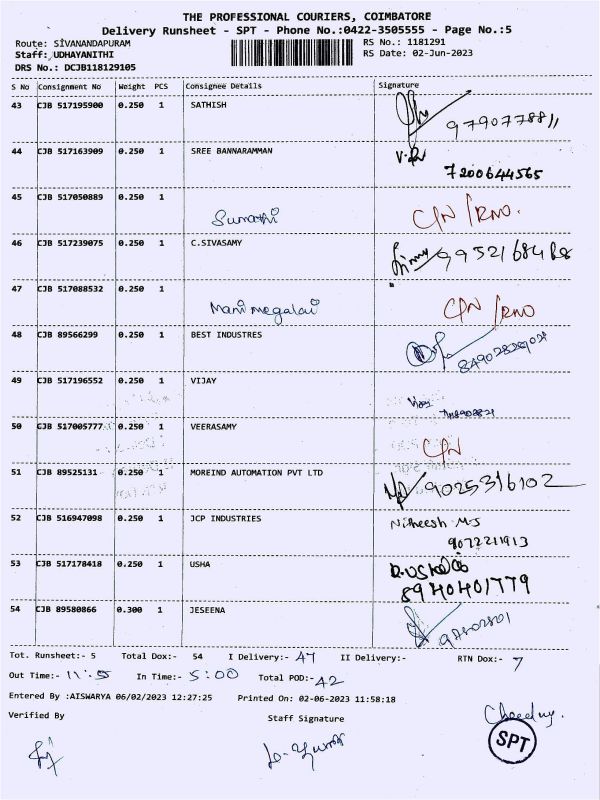 THE PROFESSIONAL COURIERS, COIMBATORE
Delivery Runsheet - SPT - Phone No.:0422-3505555 - Page No.:5
Route: SIVANANDAPURAM
RS No.: 1181291
Staff: UDHAYANITHI
RS Date: 02-Jun-2023
DRS No.: DCJB118129105
S No Consignment No Weight PCS Consignee Details Signature
43 CJB 517195900 0.250 1 SATHISH
9790778811
44 CJB 517163909 0.250 1 SREE BANNARAMMAN
7200644565
45 CJB 517050889 0.250 1
Sumathi C/N /RNO.
46 CJB 517239075 0.250 1 C.SIVASAMY
47 CJB 517088532 0.250 1
Manimegalai C/N /RNO
48 CJB 89566299 0.250 1 BEST INDUSTRES
49 CJB 517196552 0.250 1 VIJAY
Vijay
50 CJB 517005777 0.250 1 VEERASAMY
C/N
51 CJB 89525131 0.250 1 MOREIND AUTOMATION PVT LTD
9025316102
52 CJB 516947098 0.250 1 JCP INDUSTRIES
Nitheesh M.J
9072211913
53 CJB 517178418 0.250 1 USHA
8940401779
54 CJB 89580866 0.300 1 JESEENA
Tot. Runsheet:- 5 Total Dox:- 54 I Delivery:- 47 II Delivery:- RTN Dox:- 7
Out Time:- 11:55 In Time:- 5:00 Total POD:- 42
Entered By :AISWARYA 06/02/2023 12:27:25 Printed On: 02-06-2023 11:58:18
Verified By
Staff Signature
SPT